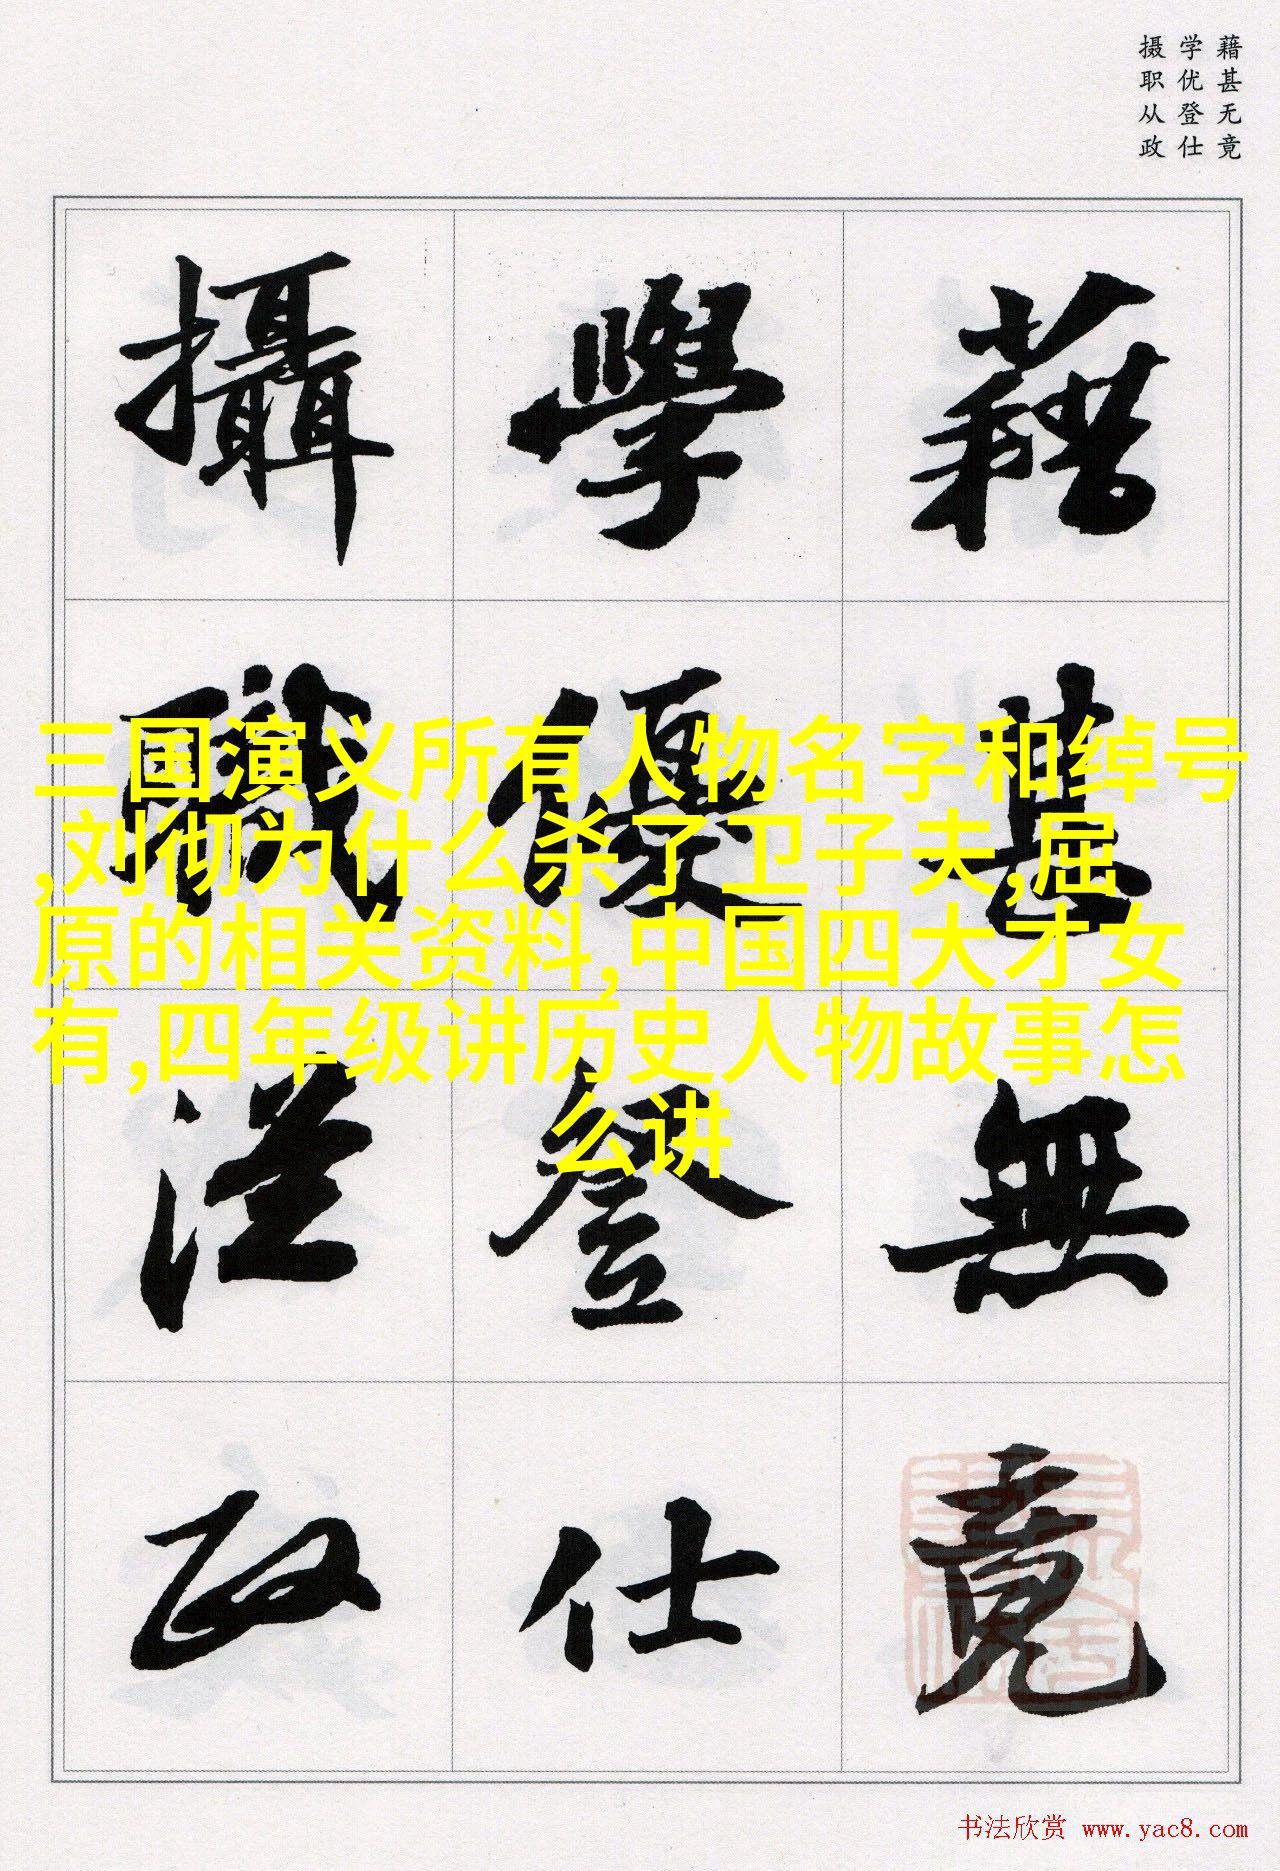 藉甚无竟
学优登仕
摄职从政
藉甚無竟
學優登仕
攝職從政
三国演义所有人物名字和绰号
,刘彻为什么杀了卫子夫,屈
原的相关资料,中国四大才女
有,四年级讲历史人物故事怎
么讲
书法欣赏 www.yac8.com